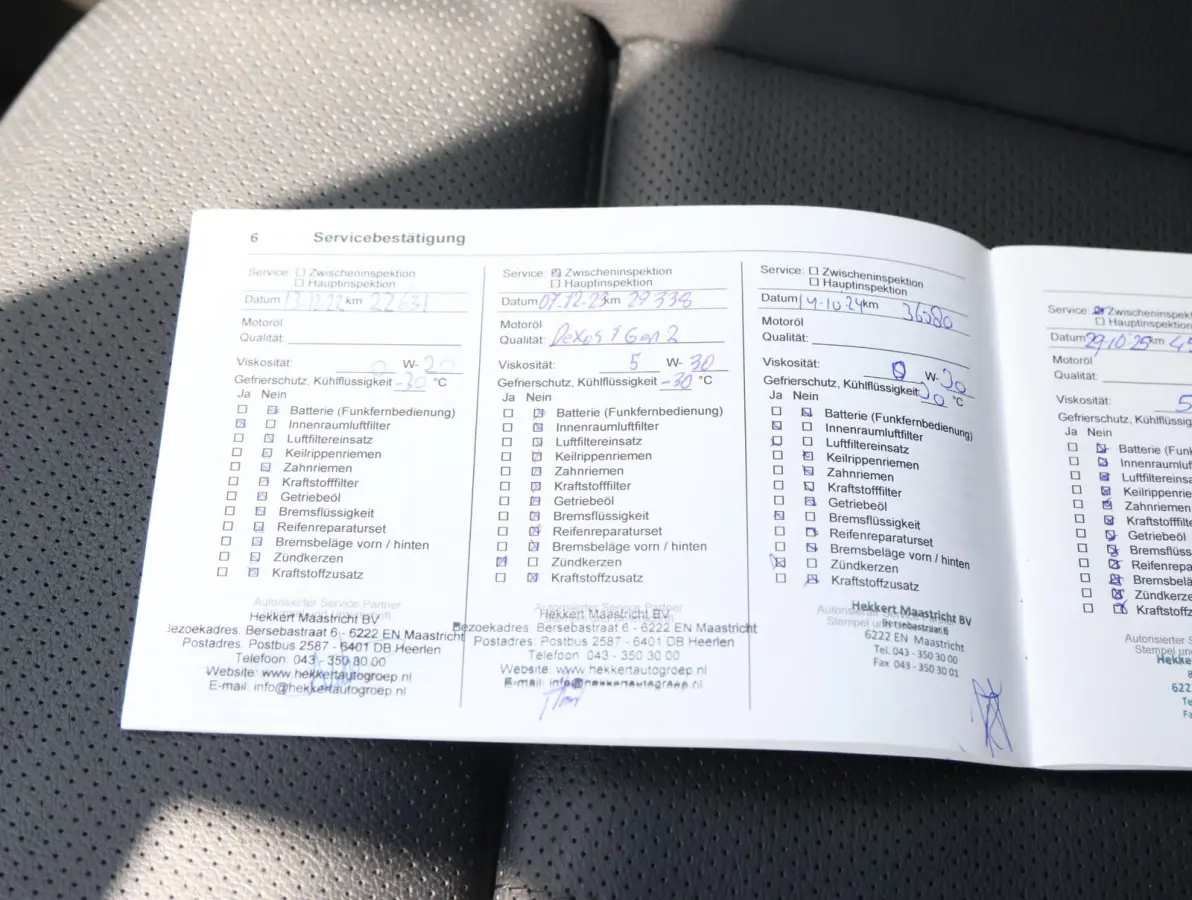 6 Servicebestätigung
Service: Zwischeninspektion
Hauptinspektion
Datum 13.12.22 km 22631
Motoröl
Qualität:
Viskosität: 0 W- 20
Gefrierschutz, Kühlflüssigkeit -30 °C
Ja Nein
Batterie (Funkfernbedienung)
Innenraumluftfilter
Luftfiltereinsatz
Keilrippenriemen
Zahnriemen
Kraftstofffilter
Getriebeöl
Bremsflüssigkeit
Reifenreparaturset
Bremsbeläge vorn / hinten
Zündkerzen
Kraftstoffzusatz
Autorisierter Service Partner
Hekkert Maastricht BV
Bezoekadres: Bersebastraat 6 - 6222 EN Maastricht
Postadres: Postbus 2587 - 6401 DB Heerlen
Telefoon: 043 - 350 30 00
Website: www.hekkertautogroep.nl
E-mail: info@hekkertautogroep.nl
Service: Zwischeninspektion
Hauptinspektion
Datum 07.12-23 km 29338
Motoröl
Qualität: Dexos 1 Gen 2
Viskosität: 5 W- 30
Gefrierschutz, Kühlflüssigkeit -30 °C
Ja Nein
Batterie (Funkfernbedienung)
Innenraumluftfilter
Luftfiltereinsatz
Keilrippenriemen
Zahnriemen
Kraftstofffilter
Getriebeöl
Bremsflüssigkeit
Reifenreparaturset
Bremsbeläge vorn / hinten
Zündkerzen
Kraftstoffzusatz
Autorisierter Service Partner
Hekkert Maastricht BV
Bezoekadres: Bersebastraat 6 - 6222 EN Maastricht
Postadres: Postbus 2587 - 6401 DB Heerlen
Telefoon: 043 - 350 30 00
Website: www.hekkertautogroep.nl
E-mail: info@hekkertautogroep.nl
Service: Zwischeninspektion
Hauptinspektion
Datum 14-10-24 km 36380
Motoröl
Qualität:
Viskosität: 0 W- 30
Gefrierschutz, Kühlflüssigkeit 30 °C
Ja Nein
Batterie (Funkfernbedienung)
Innenraumluftfilter
Luftfiltereinsatz
Keilrippenriemen
Zahnriemen
Kraftstofffilter
Getriebeöl
Bremsflüssigkeit
Reifenreparaturset
Bremsbeläge vorn / hinten
Zündkerzen
Kraftstoffzusatz
Stempel und
Hekkert Maastricht BV
Bersebastraat 6
6222 EN Maastricht
Tel. 043 - 350 30 00
Fax 043 - 350 30 01
Service: Zwischeninspekt
Hauptinspektion
Datum 29-10-25 km 4
Motoröl
Qualität:
Viskosität: 5
Gefrierschutz, Kühlflüssig
Ja Nein
Batterie (Funk
Innenraumluf
Luftfiltereinsa
Keilrippenrie
Zahnriemen
Kraftstofffilt
Getriebeöl
Bremsflüss
Reifenrepa
Bremsbelä
Zündkerze
Kraftstoffz
Autorisierter S
Stempel un
Hekke
622
Te
Fa